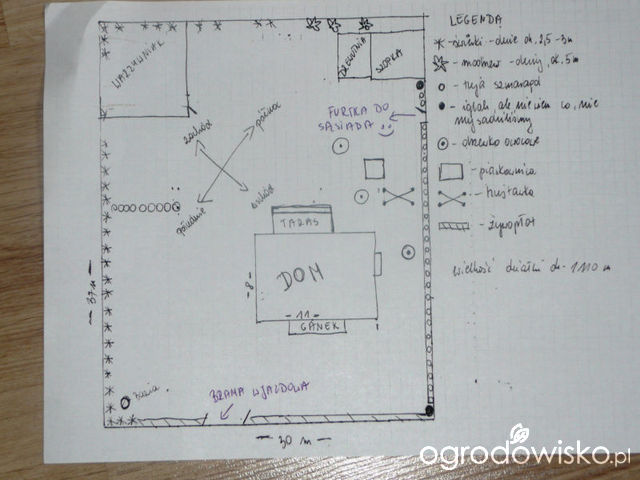 LEGENDA
- świerki - duże ok. 2,5 - 3 m
- modrzew - duży, ok. 5 m
- tuja szmaragd
- iglaki, ale nie wiem co, nie
my sadziliśmy
- drzewko owocowe
- piaskownica
- huśtawka
- żywopłot
wielkość działki ok. 1110 m
WARZYWNIAK
DREWUTNIA
SZOPKA
FURTKA DO
SĄSIADA
zachód
północ
południe
wschód
TARAS
DOM
- 8 -
- 11 -
GANEK
- 37 m -
BRAMA WJAZDOWA
- 30 m -
ogrodowisko.pl